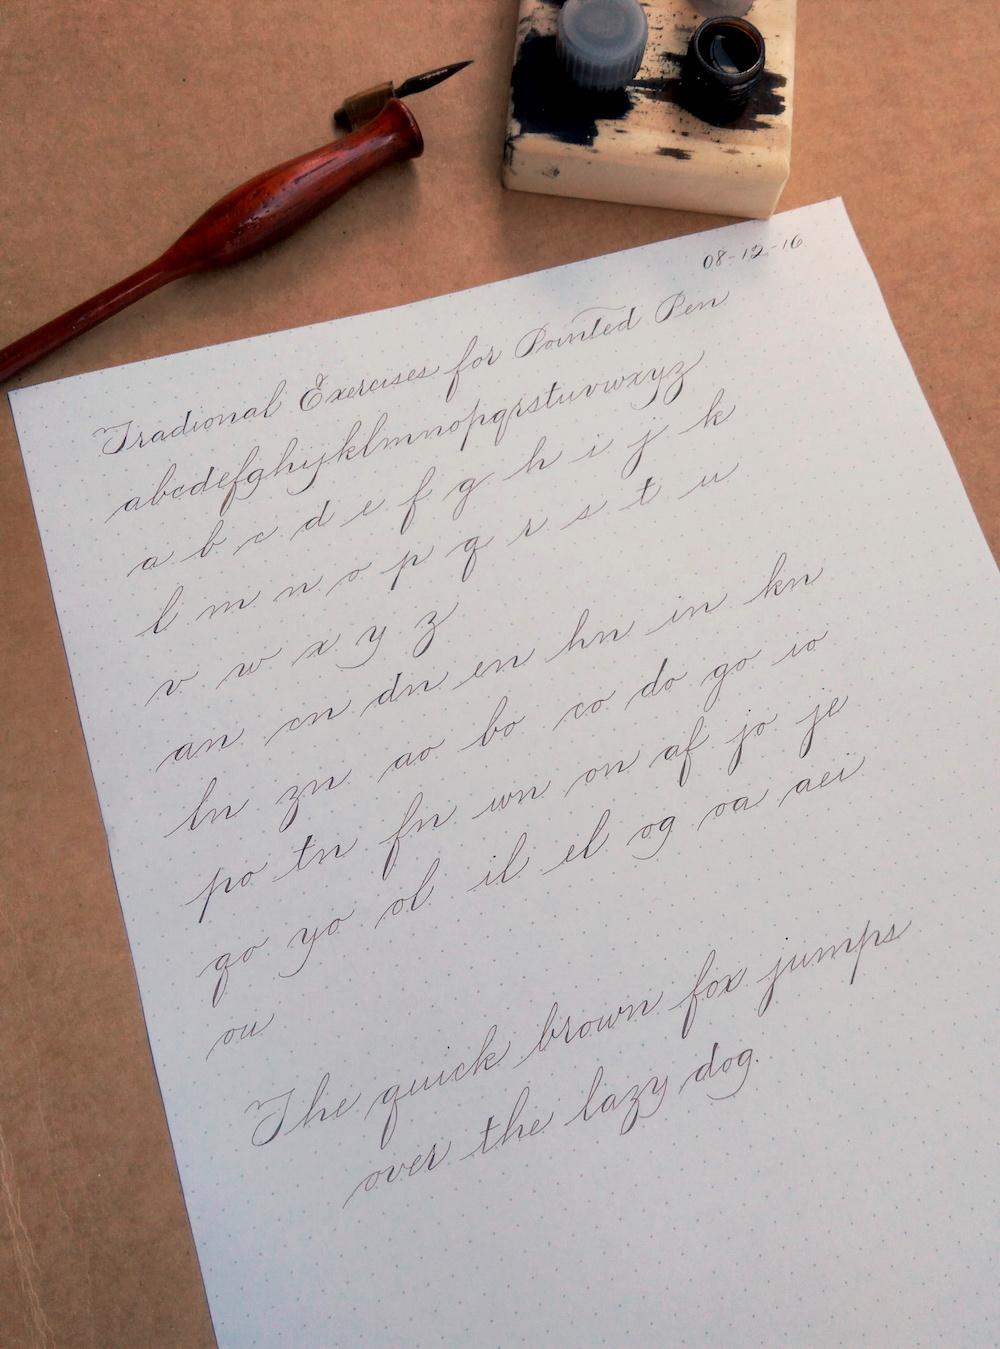 08-12-16
Tradional Exercises for Pointed Pen
abcdefghijklmnopqrstuvwxyz
a b c d e f g h i j k
l m n o p q r s t u
v w x y z
an cn dn en hn in kn
ln zn ao bo co do go io
po tn fn wn on af jo je
qo yo ol il el og oa aei
ou
The quick brown fox jumps
over the lazy dog.